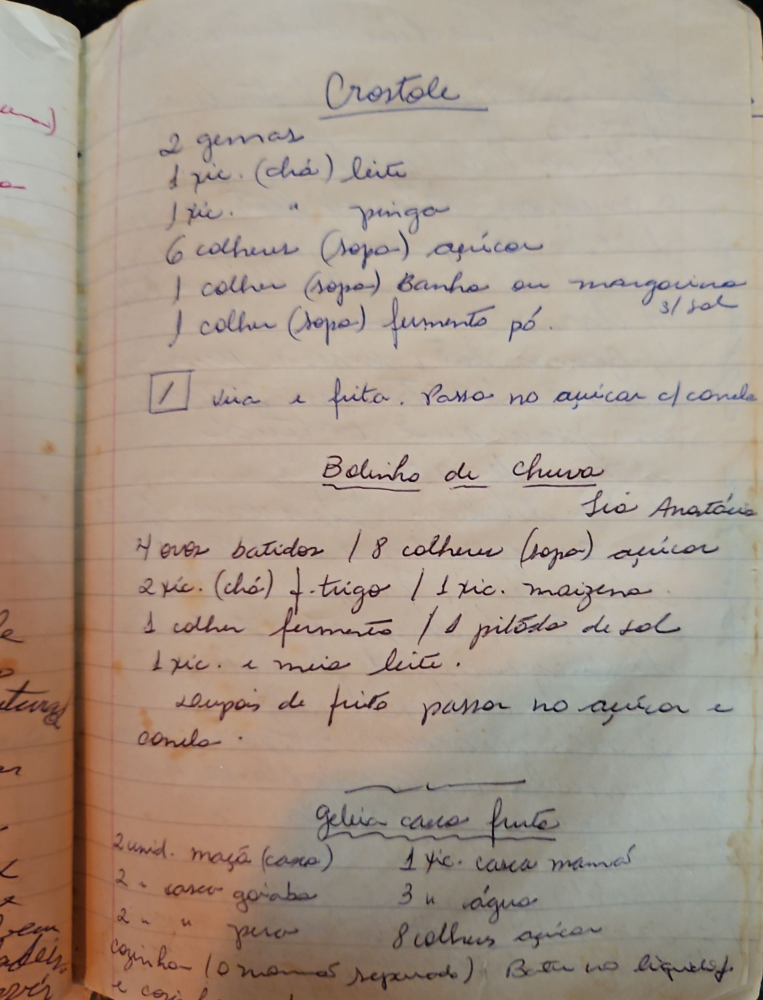 Crostole
2 gemas
1 xic. (chá) leite
1 xic. " pinga
6 colheres (sopa) açúcar
1 colher (sopa) Banha ou margarina
s/ sal
1 colher (sopa) fermento pó.
1 vira e frita. Passa no açúcar c/ canela
Bolinho de Chuva
Anastácia
4 ovos batidos / 8 colheres (sopa) açúcar
2 xic. (chá) f. trigo / 1 xic. maizena
1 colher fermento / 1 pitáda de sal
1 xic. e meia leite.
de frito passar no açúcar e
canela.
Geleia casca fruta
2 unid. maçã (casca) 1 xic. casca mamão
2 " casca goiaba 3 " água
2 " " pera 8 colheres açúcar
cozinhar (o mamão separado) Bater no liquidif.
e